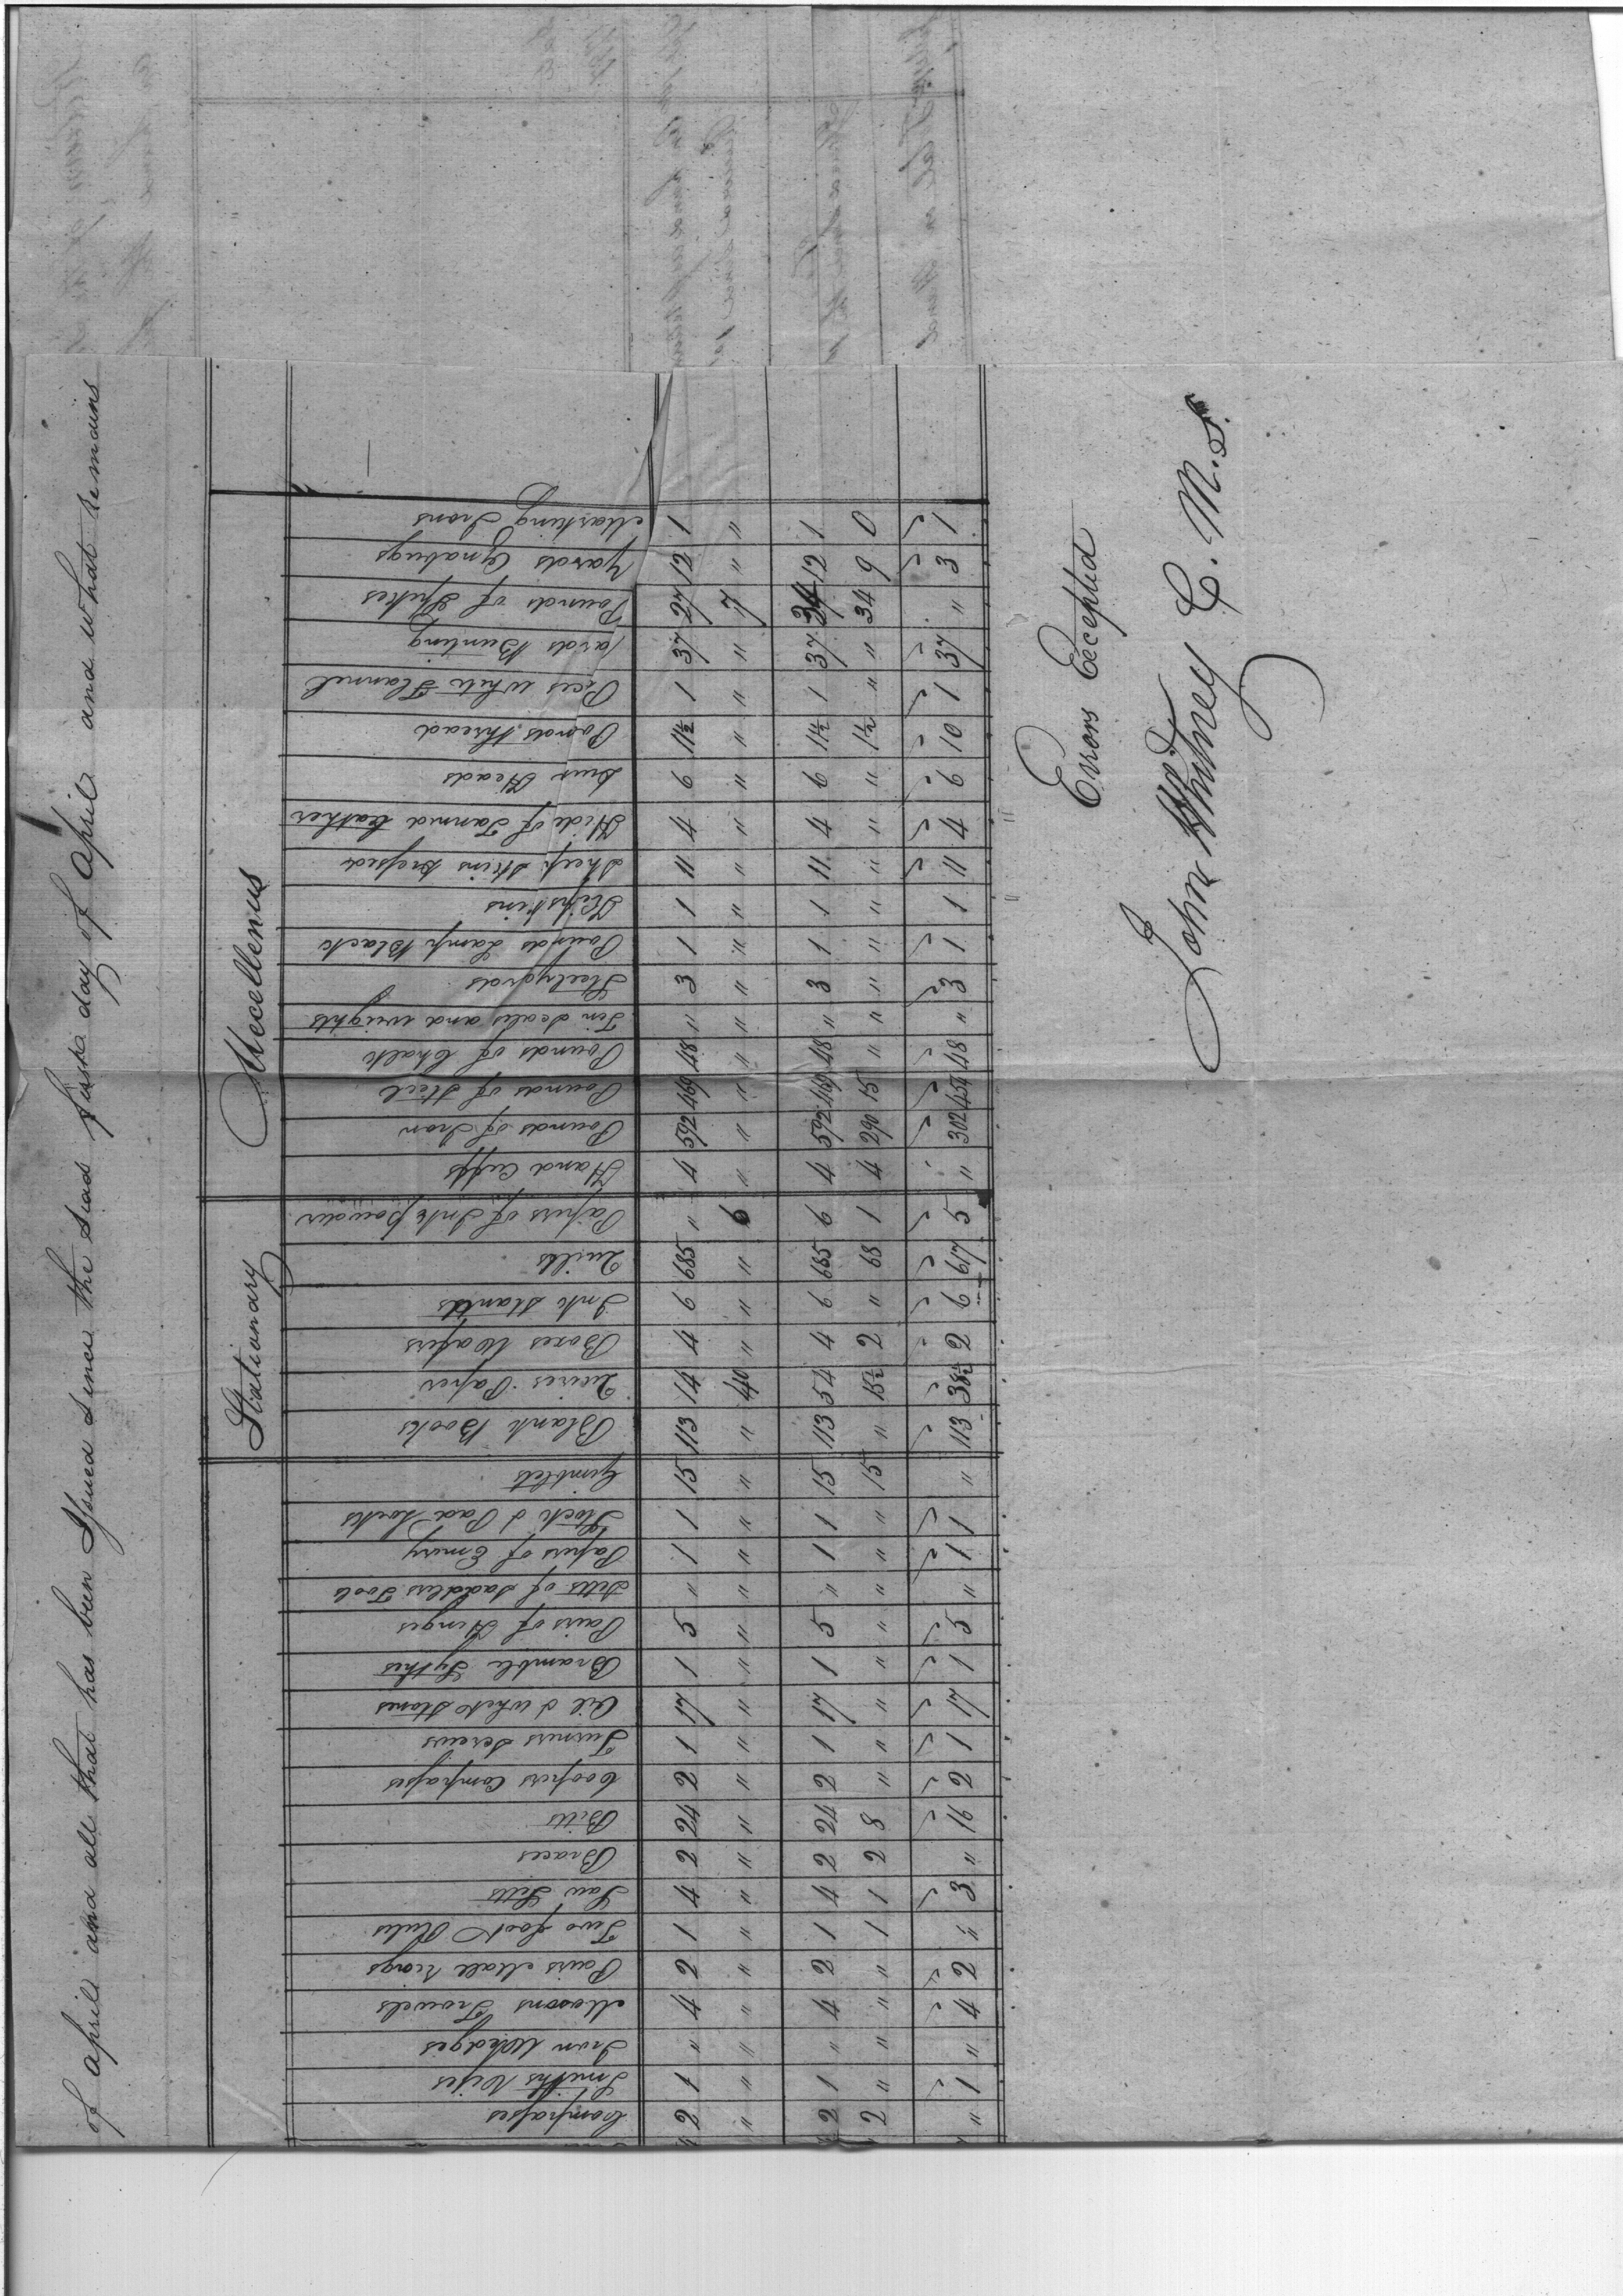 of april and all that has been Issued Since the Said first day of April and what remains
Stationary
Mecellenus
Compasses 2 " 2 2 "
Smiths Vices 1 " 1 " 1
Iron Wedges " " " " "
Masons Trowels 4 " 4 " 4
Pairs Mall rings 2 " 2 " 2
Two foot Rules 1 " 1 1 "
Saw Setts 4 " 4 1 3
Braces 2 " 2 2 "
Bitts 24 " 24 8 16
Coopers Compasses 2 " 2 " 2
Turners Screws 1 " 1 " 1
Oil & Whet Stones 17 " 17 " 17
Bramble Sythes 1 " 1 " 1
Pairs of Hinges 5 " 5 " 5
Setts of Saddlers Tools " " " " "
Papers of Emery 1 " 1 " 1
Stock & Pad Locks 1 " 1 " 1
Gimblets 15 " 15 15 "
Blank Books 113 " 113 " 113
Quires Paper 14 40 54 15½ 38½
Boxes Wafers 4 " 4 2 2
Ink Stands 6 " 6 " 6
Quills 685 " 685 68 617
Papers of Ink powder " 6 6 1 5
Hand Cuffs 4 " 4 4 "
Pounds of Iron 592 " 592 290 302
Pounds of Steel 469 " 469 15 454
Pounds of Chalk 48 " 48 " 48
Tin Scales and weights " " " " "
Steelyards 3 " 3 " 3
Pounds Lamp Black 1 " 1 " 1
Kipskins 1 " 1 " 1
Sheep Skins Dressed 11 " 11 " 11
Hide of Tanned Leather 4 " 4 " 4
Drum Heads 6 " 6 " 6
Pounds Thread 11½ " 11½ 1½ 10
Pices White Flannel 1 " 1 " 1
yards Bunting 37 " 37 " 37
Pounds of Spikes 27 7 34 34 "
Yards Oznabugs 12 " 12 9 3
Marking Irons 1 " 1 0 1
Errors Excepted
John Whitney C. M. S.